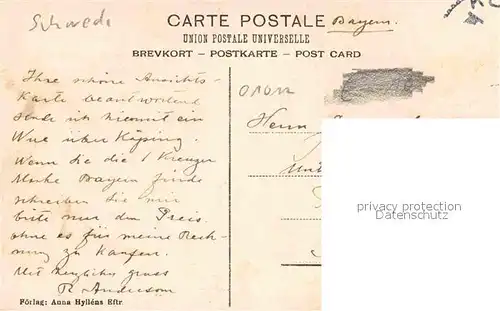 Schwede
CARTE POSTALE
Bayern.
UNION POSTALE UNIVERSELLE
BREVKORT – POSTKARTE – POST CARD
Ihre schöne Ansichts-
Karte beantwortend
sende ich hiermit ein
über Köping.
Wenn Sie die 1 Kreuzer
Marke Bayern finde
schreiben Sie mir
bitte nur den Preis
ohne es für meine Rech-
nung zu Kaufen.
Mit herzlichen gruss
R Andersson
Förlag: Anna Hylléns Eftr.
Herrn
privacy protection
Datenschutz